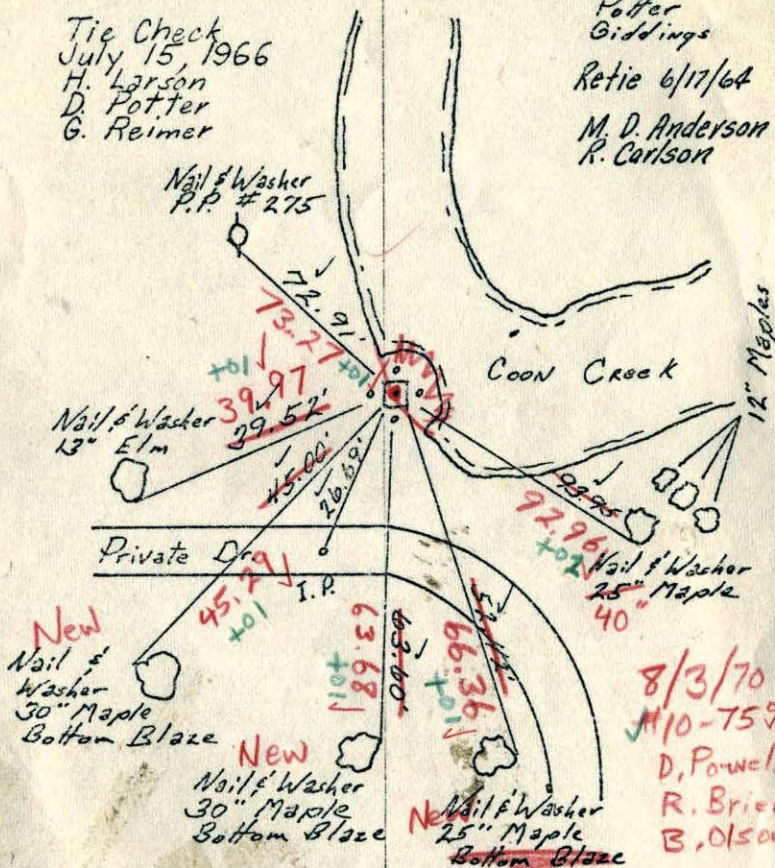 Tie Check
July 15, 1966
H. Larson
D. Potter
G. Reimer
Potter
Giddings
Retie 6/17/64
M. D. Anderson
R. Carlson
Nail & Washer
P.P. # 275
72.91'
73.27
+01
+01
39.97
39.52'
Nail & Washer
13" Elm
45.00'
26.69'
COON CREEK
12" Maples
93.95
92.96
+02
Nail & Washer
25" Maple
40"
Private Dr.
I.P.
45.29
+01
63.68
+01
63.60'
66.36
+01
New
Nail &
Washer
30" Maple
Bottom Blaze
New
Nail & Washer
30" Maple
Bottom Blaze
New
Nail & Washer
25" Maple
Bottom Blaze
8/3/70
D. Powell
R. Brie
B. Olson